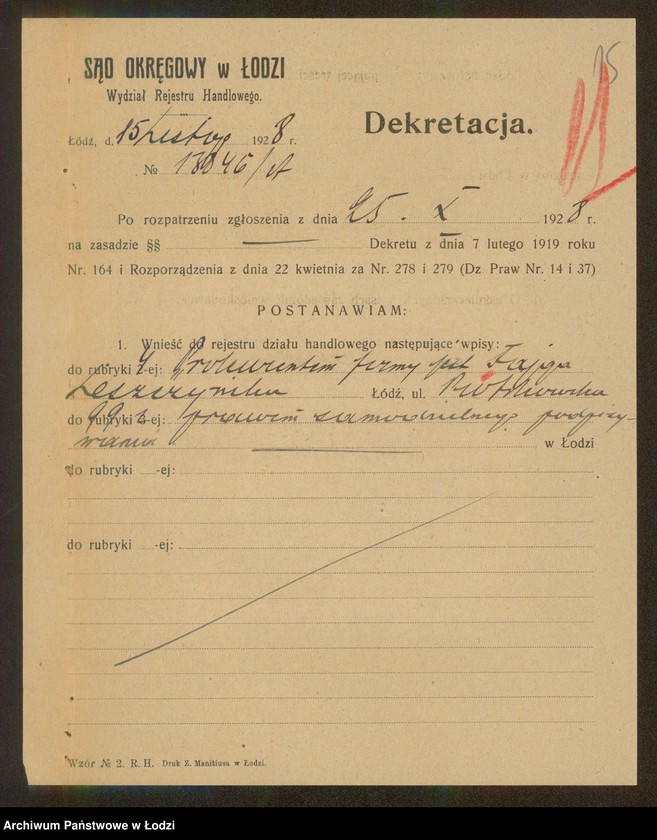 15
SĄD OKRĘGOWY w ŁODZI
Wydział Rejestru Handlowego.
Dekretacja.
Łódź, d. 15 Listop 1928 r.
№ 13046/A
Po rozpatrzeniu zgłoszenia z dnia 25. X 1928 r.
na zasadzie §§ — Dekretu z dnia 7 lutego 1919 roku
Nr. 164 i Rozporządzenia z dnia 22 kwietnia za Nr. 278 i 279 (Dz Praw Nr. 14 i 37)
POSTANAWIAM:
1. Wnieść do rejestru działu handlowego następujące wpisy:
do rubryki 4-ej: Prokurentem firmy jest Fajga
Leszczyńska Łódź, ul. Piotrkowska
do rubryki -ej: 99 z prawem samodzielnego podpisy-
wania w Łodzi
do rubryki -ej:
do rubryki -ej:
Wzór № 2. R. H. Druk Z. Manitiusa w Łodzi.
Archiwum Państwowe w Łodzi